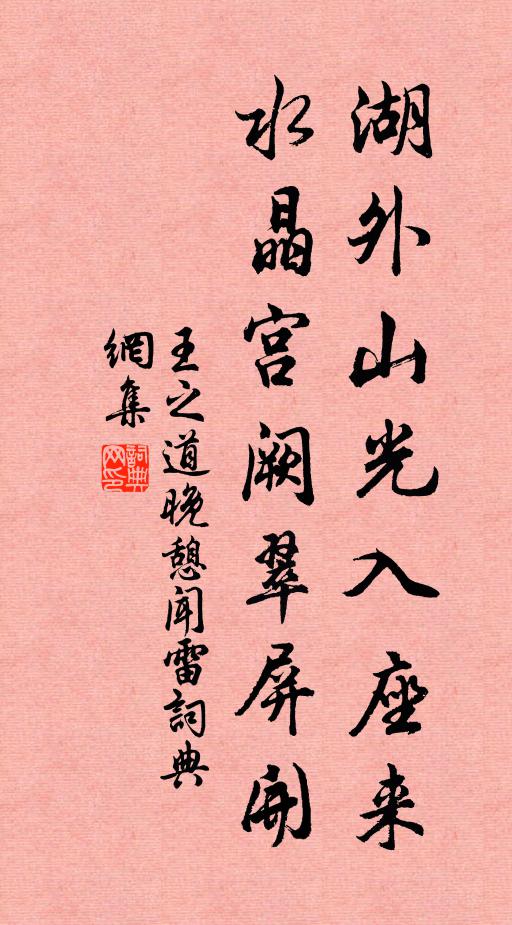 湖外山光入座来
水晶宫阙翠屏開
王之道晚憩闻雷詞典
網集
詞典網印